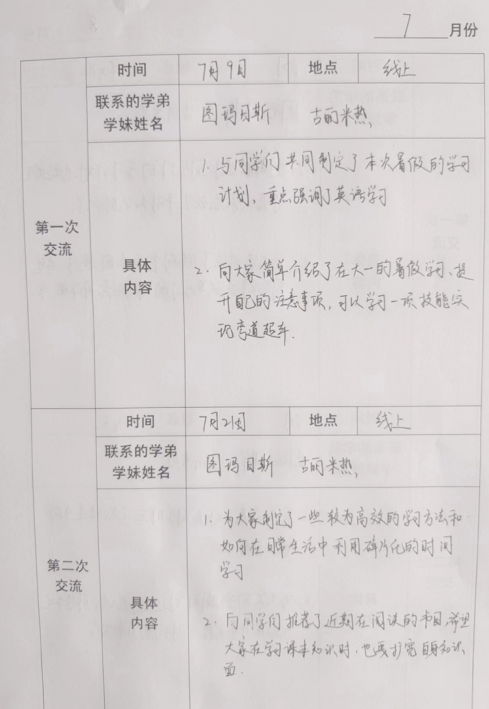 7 月份
时间 7月9日 地点 线上
联系的学弟
学妹姓名
图玛贝斯 古丽米热
第一次
交流
具体
内容
1. 与同学们共同制定了本次暑假的学习
计划,重点强调了英语学习
2. 向大家简单介绍了在大一的暑假学习、提
升自己的注意事项,可以学习一项技能实
现弯道超车.
时间 7月21日 地点 线上
联系的学弟
学妹姓名
图玛贝斯 古丽米热
第二次
交流
具体
内容
1. 为大家制定了一些较为高效的学习方法和
如何在日常生活中利用碎片化的时间
学习
2. 与同学们推荐了近期在阅读的书目,希望
大家在学习课本知识时,也要扩宽自身知识
面.